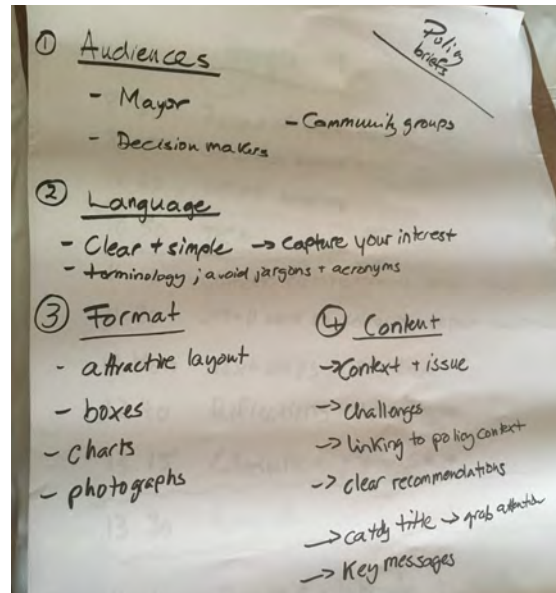 Policy
briefs
① Audiences
- Mayor
- Community groups
- Decision makers
② Language
- Clear + simple → Capture your interest
- terminology ; avoid jargons + acronyms
③ Format
- attractive layout
- boxes
- charts
- photographs
④ Content
→ Context + issue
→ Challenges
→ linking to policy context
→ clear recommendations
→ catchy title → grab attention
→ Key messages